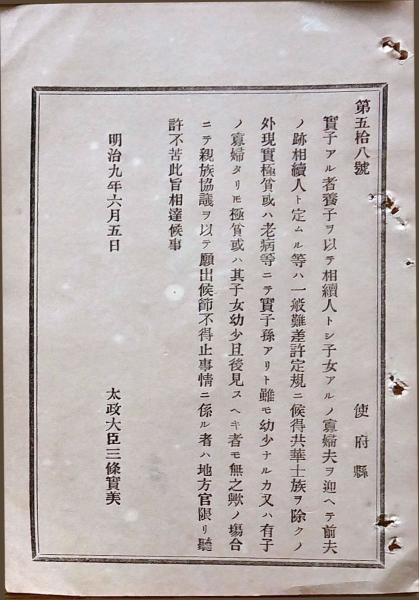 第五拾八號
使府縣
實子アル者養子ヲ以テ相續人トシ子女アルノ寡婦夫ヲ迎ヘテ前夫
ノ跡相續人ト定ムル等ハ一般難差許定規ニ候得共華士族ヲ除クノ
外現實極貧或ハ老病等ニテ實子孫アリト雖モ幼少ナルカ又ハ有子
ノ寡婦タリ𪜈極貧或ハ其子女幼少且後見スヘキ者モ無之歟ノ場合
ニテ親族協議ヲ以テ願出候節不得止事情ニ係ル者ハ地方官限リ聽
許不苦此旨相達候事
明治九年六月五日
太政大臣三條實美